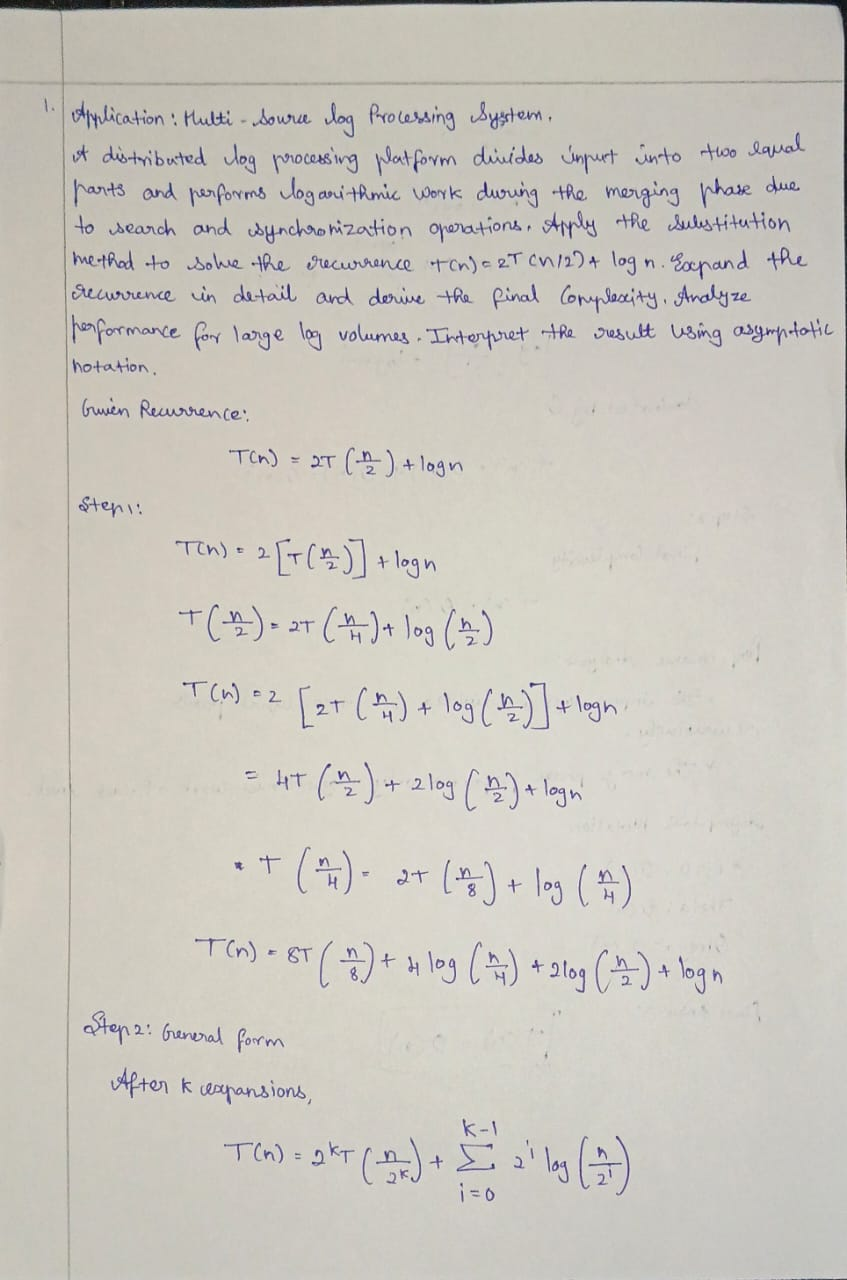 1. Application : Multi - Source log Processing System.
A distributed log processing platform divides input into two equal
parts and performs logarithmic work during the merging phase due
to search and synchronization operations. Apply the substitution
method to solve the recurrence T(n) = 2T (n/2) + log n. Expand the
recurrence in detail and derive the final Complexity. Analyze
performance for large log volumes. Interpret the result using asymptotic
notation.
Given Recurrence:
T(n) = 2T (n/2) + log n
Step 1:
T(n) = 2 [T(n/2)] + log n
T(n/2) = 2T (n/4) + log (n/2)
T(n) = 2 [2T (n/4) + log (n/2)] + log n
= 4T (n/2) + 2 log (n/2) + log n
* T (n/4) = 2T (n/8) + log (n/4)
T(n) = 8T (n/8) + 4 log (n/4) + 2 log (n/2) + log n
Step 2: General form
After k expansions,
T(n) = 2^k T (n/2^k) + Σ_{i=0}^{k-1} 2^i log (n/2^i)